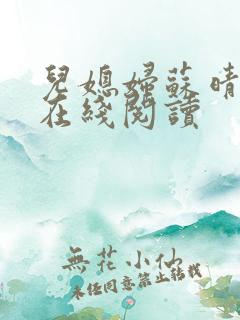 兒媳婦蘇晴
在綫閱讀
無花小仙
未经同意禁止转载